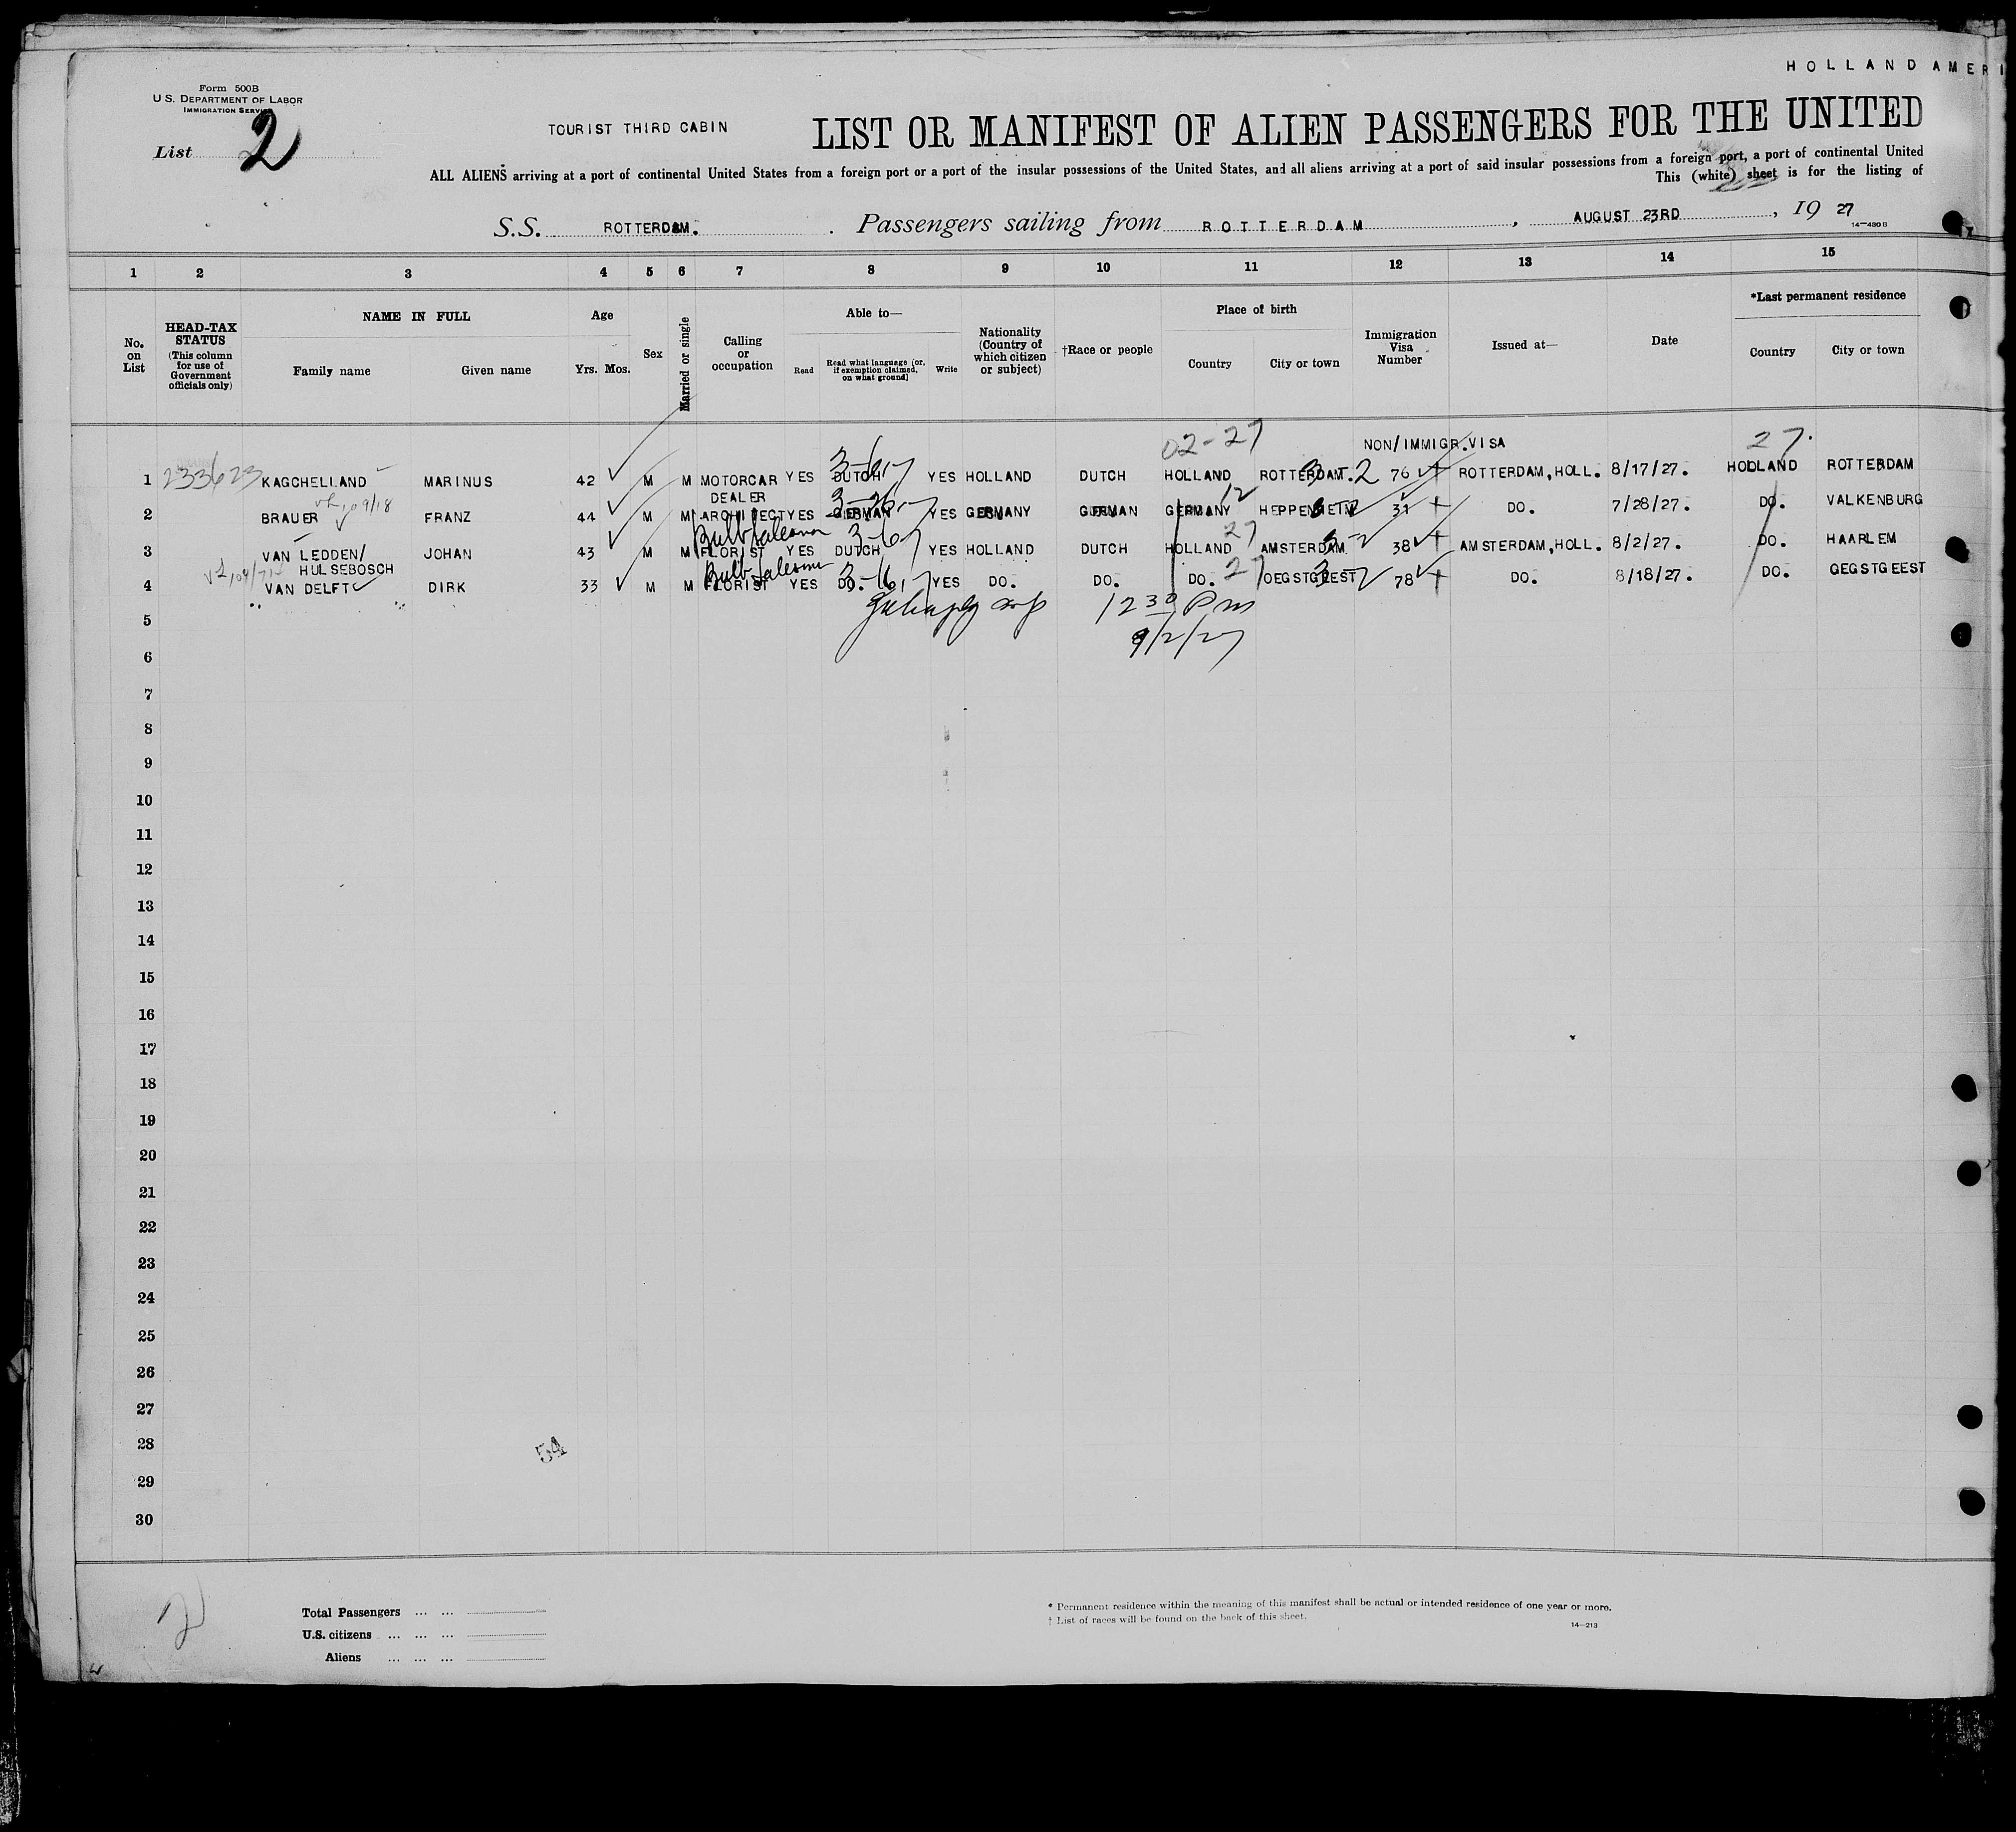 HOLLAND AMERI
Form 500B
U.S. DEPARTMENT OF LABOR
IMMIGRATION SERVICE
List 2
TOURIST THIRD CABIN
LIST OR MANIFEST OF ALIEN PASSENGERS FOR THE UNITED
ALL ALIENS arriving at a port of continental United States from a foreign port or a port of the insular possessions of the United States, and all aliens arriving at a port of said insular possessions from a foreign port, a port of continental United
This (white) sheet is for the listing of
S.S. ROTTERDAM. Passengers sailing from ROTTERDAM, AUGUST 23RD, 19 27
14-480 B
1 2 3 4 5 6 7 8 9 10 11 12 13 14 15
No. on List
HEAD-TAX STATUS (This column for use of Government officials only)
NAME IN FULL
Family name Given name
Age
Yrs. Mos.
Sex
Married or single
Calling or occupation
Able to—
Read
Read what language (or, if exemption claimed, on what ground)
Write
Nationality (Country of which citizen or subject)
†Race or people
Place of birth
Country City or town
Immigration Visa Number
Issued at—
Date
*Last permanent residence
Country City or town
02-27 NON/IMMIGR.VISA 27.
1 233623 KAGCHELLAND MARINUS 42 M M MOTORCAR DEALER YES DUTCH YES HOLLAND DUTCH HOLLAND ROTTERDAM. 76 ROTTERDAM,HOLL. 8/17/27. HOLLAND ROTTERDAM
2 BRAUER FRANZ 44 M M ARCHITECT YES GERMAN YES GERMANY GERMAN GERMANY HEPPENHEIM 31 DO. 7/28/27. DO. VALKENBURG
Bulb Salesman
3 VAN LEDDEN/HULSEBOSCH JOHAN 43 M M FLORIST YES DUTCH YES HOLLAND DUTCH HOLLAND AMSTERDAM 38 AMSTERDAM,HOLL. 8/2/27. DO. HAARLEM
Bulb Salesman
4 VAN DELFT DIRK 33 M M FLORIST YES DO. YES DO. DO. DO. OEGSTGEEST 78 DO. 8/18/27. DO. OEGSTGEEST
5 12 30 Pm
6 9/2/27
7
8
9
10
11
12
13
14
15
16
17
18
19
20
21
22
23
24
25
26
27
28
54
29
30
2
Total Passengers ... ...
U.S. citizens ... ... ...
Aliens ... ... ...
* Permanent residence within the meaning of this manifest shall be actual or intended residence of one year or more.
† List of races will be found on the back of this sheet.
14-213